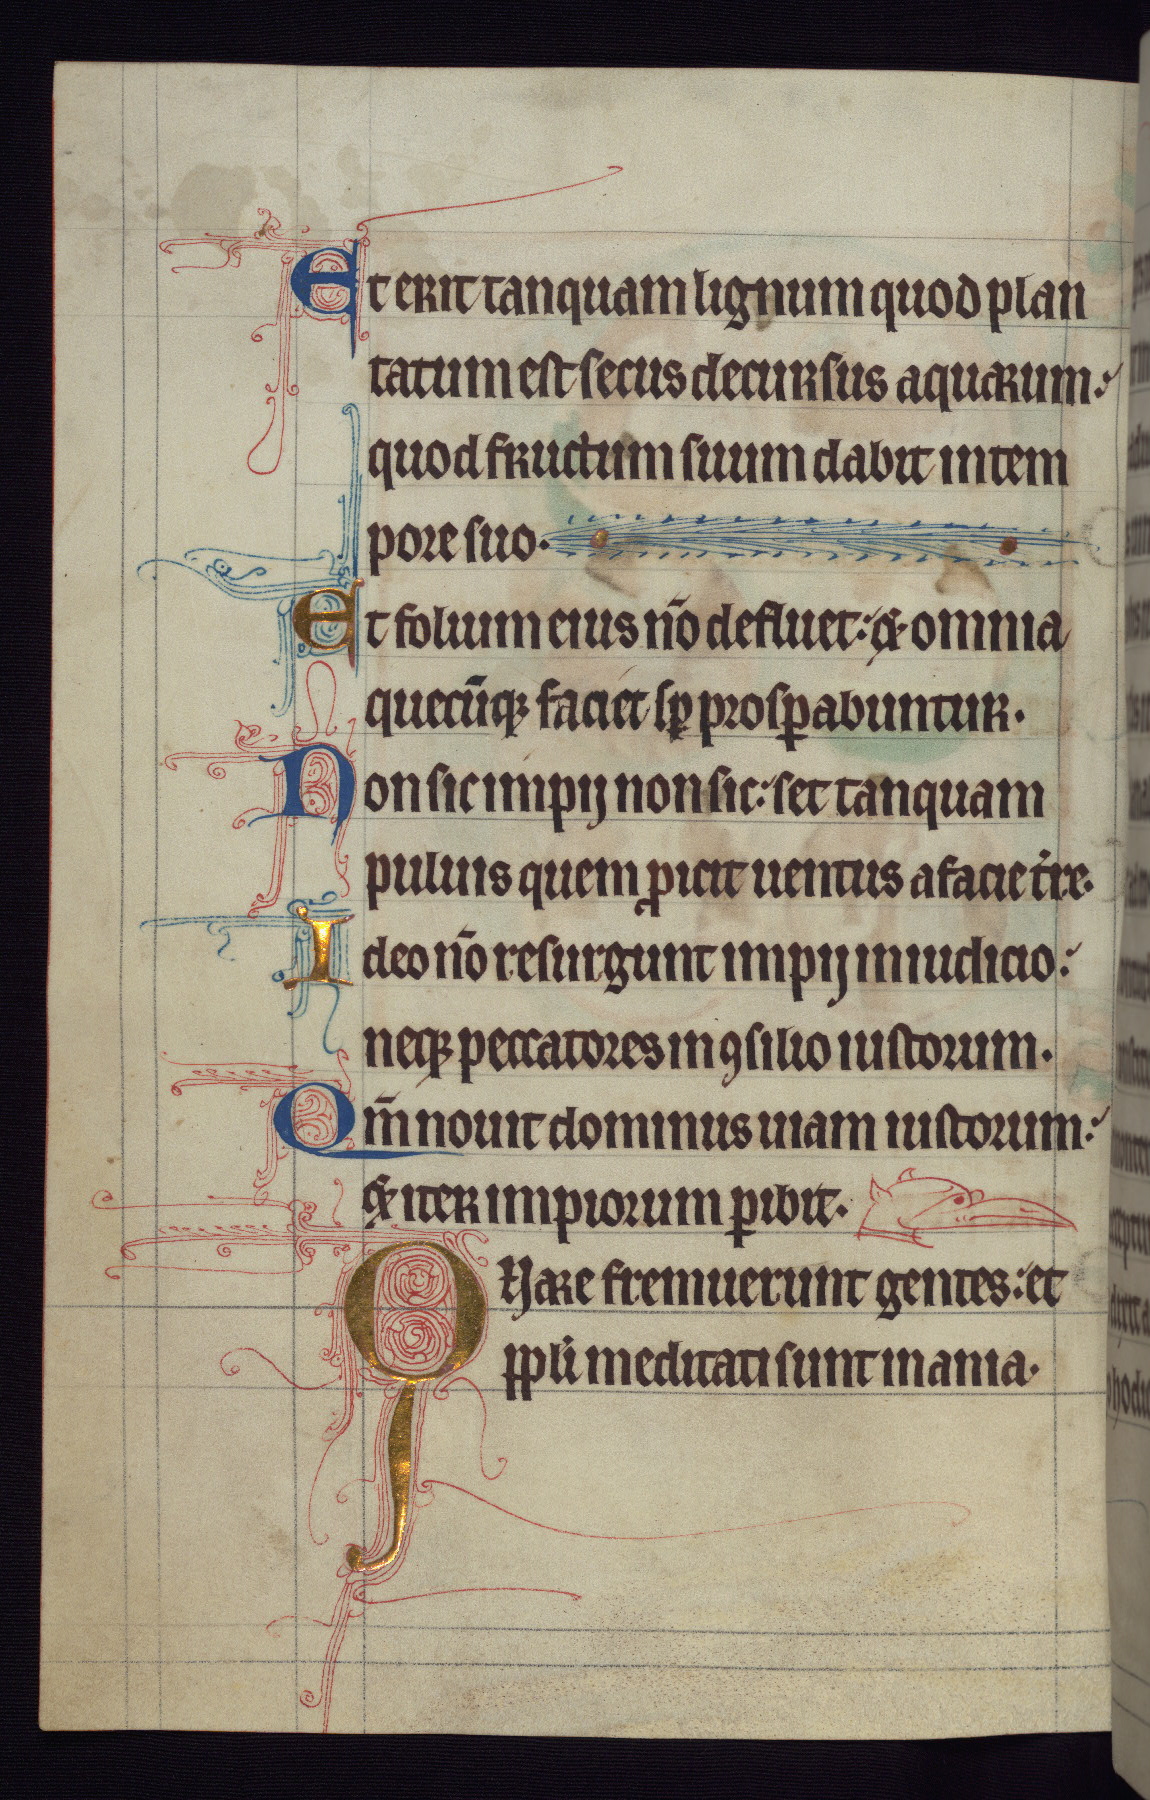 Et erit tanquam lignum quod plan
tatum est secus decursus aquarum:
quod fructum suum dabit in tem
pore suo.
Et folium eius nō defluet: & omnia
quecūq; faciet sp̱ prosꝑabuntur.
Non sic impij non sic: set tanquam
puluis quem ꝓicit uentus a facie t̄re.
Ideo nō resurgunt impij in iudicio:
neq; peccatores in ꝯsilio iustorum.
Qm̄ nouit dominus uiam iustorum:
& iter impiorum ꝑibit.
QUare fremuerunt gentes: et
ppl̄i meditati sunt inania.